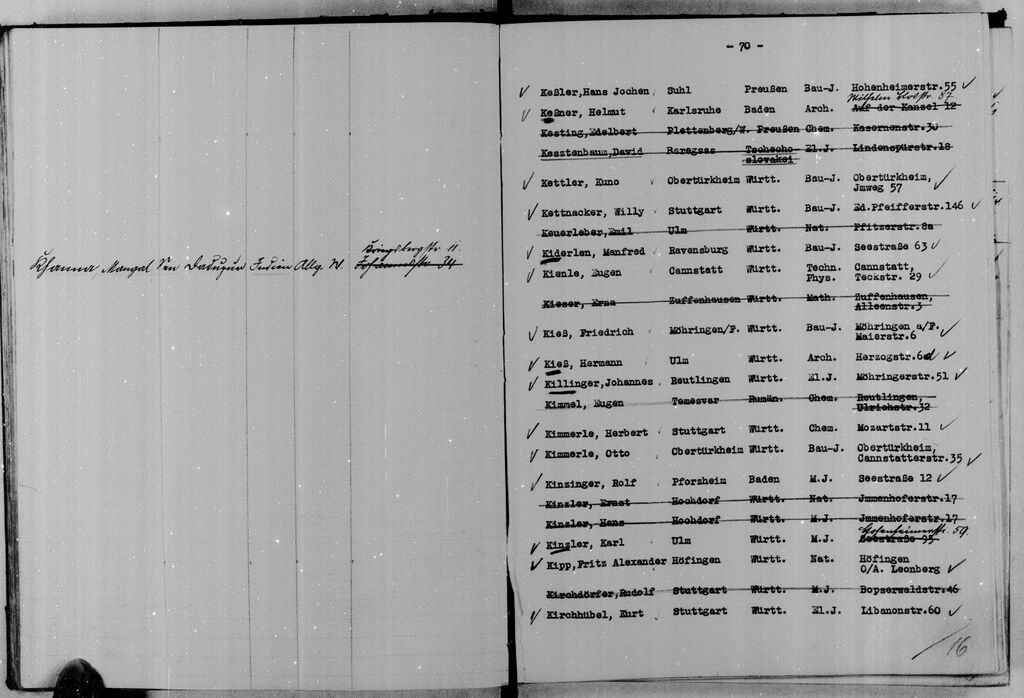 Kriegsbergstr 11.
Khanna Mangal Sen Indien Allg. W. Johannesstr 34
- 70 -
√ Keßler,Hans Jochen Suhl Preußen Bau-J. Hohenheimerstr.55 √
87
√ Keßner, Helmut Karlsruhe Baden Arch. Auf der Kanzel 12
Kesting,Edelbert Plettenberg/W. Preußen Chem. Kasernenstr.30
Kesztenbaum,David Baragsas Tschecho- El.J. Lindenspürstr.18
slovakei
√ Kettler, Kuno √ Obertürkheim Württ. Bau-J. Obertürkheim, √
Jmweg 57
√ Kettnacker, Willy √ Stuttgart Württ. Bau-J. Ed.Pfeifferstr.146 √
Keuerleber, Emil Ulm Württ. Nat. Pfitzerstr.8a
√ Kiderlen, Manfred √ Ravensburg Württ. Bau-J. Seestraße 63 √
√ Kienle, Eugen √ Cannstatt Württ. Techn. Cannstatt, √
Phys. Teckstr. 29
Kieser, Erna Zuffenhausen Württ. Math. Zuffenhausen,
Alleenstr.3
√ Kieß, Friedrich √ Möhringen/F. Württ. Bau-J. Möhringen a/F. √
Maierstr.6
√ Kieß, Hermann √ Ulm Württ. Arch. Herzogstr.6d √
√ Killinger,Johannes √ Reutlingen Württ. El.J. Möhringerstr.51 √
Kimmel, Eugen Temesvar Rumän. Chem. Reutlingen,
Ulrichstr.32
√ Kimmerle, Herbert √ Stuttgart Württ. Chem. Mozartstr.11 √
√ Kimmerle, Otto √ Obertürkheim Württ. Bau-J. Obertürkheim,
Cannstatterstr.35 √
√ Kinzinger, Rolf √ Pforzheim Baden M.J. Seestraße 12 √
Kinzler, Ernst Hochdorf Württ. Nat. Jmmenhoferstr.17
Kinzler, Hans Hochdorf Württ. M.J. Jmmenhoferstr.17
Hohenheimerstr. 59.
√ Kinzler, Karl √ Ulm Württ. M.J. Seestraße 95
√ Kipp,Fritz Alexander Höfingen Württ. Nat. Höfingen
O/A. Leonberg √
Kirchdörfer,Rudolf Stuttgart Württ. M.J. Bopserwaldstr.46
√ Kirchhübel, Kurt √ Stuttgart Württ. El.J. Libanonstr.60 √
16